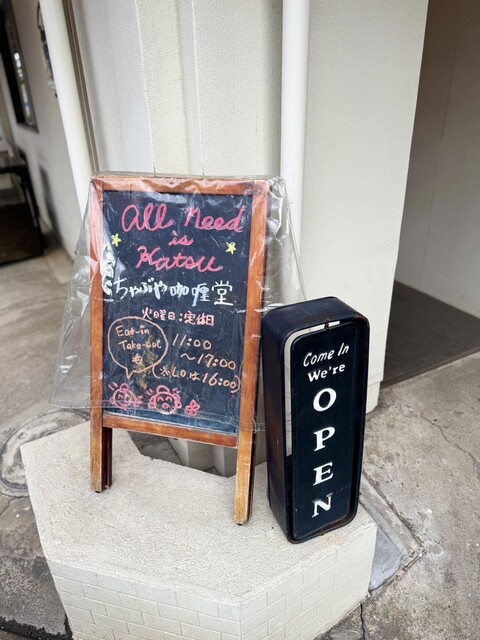 All Need
is
Katsu
ちゃぶや咖喱堂
火曜日:定休日
Eat-in
Take-out
も
11:00
～17:00
(※LOは16:00)
Come In
We're
OPEN